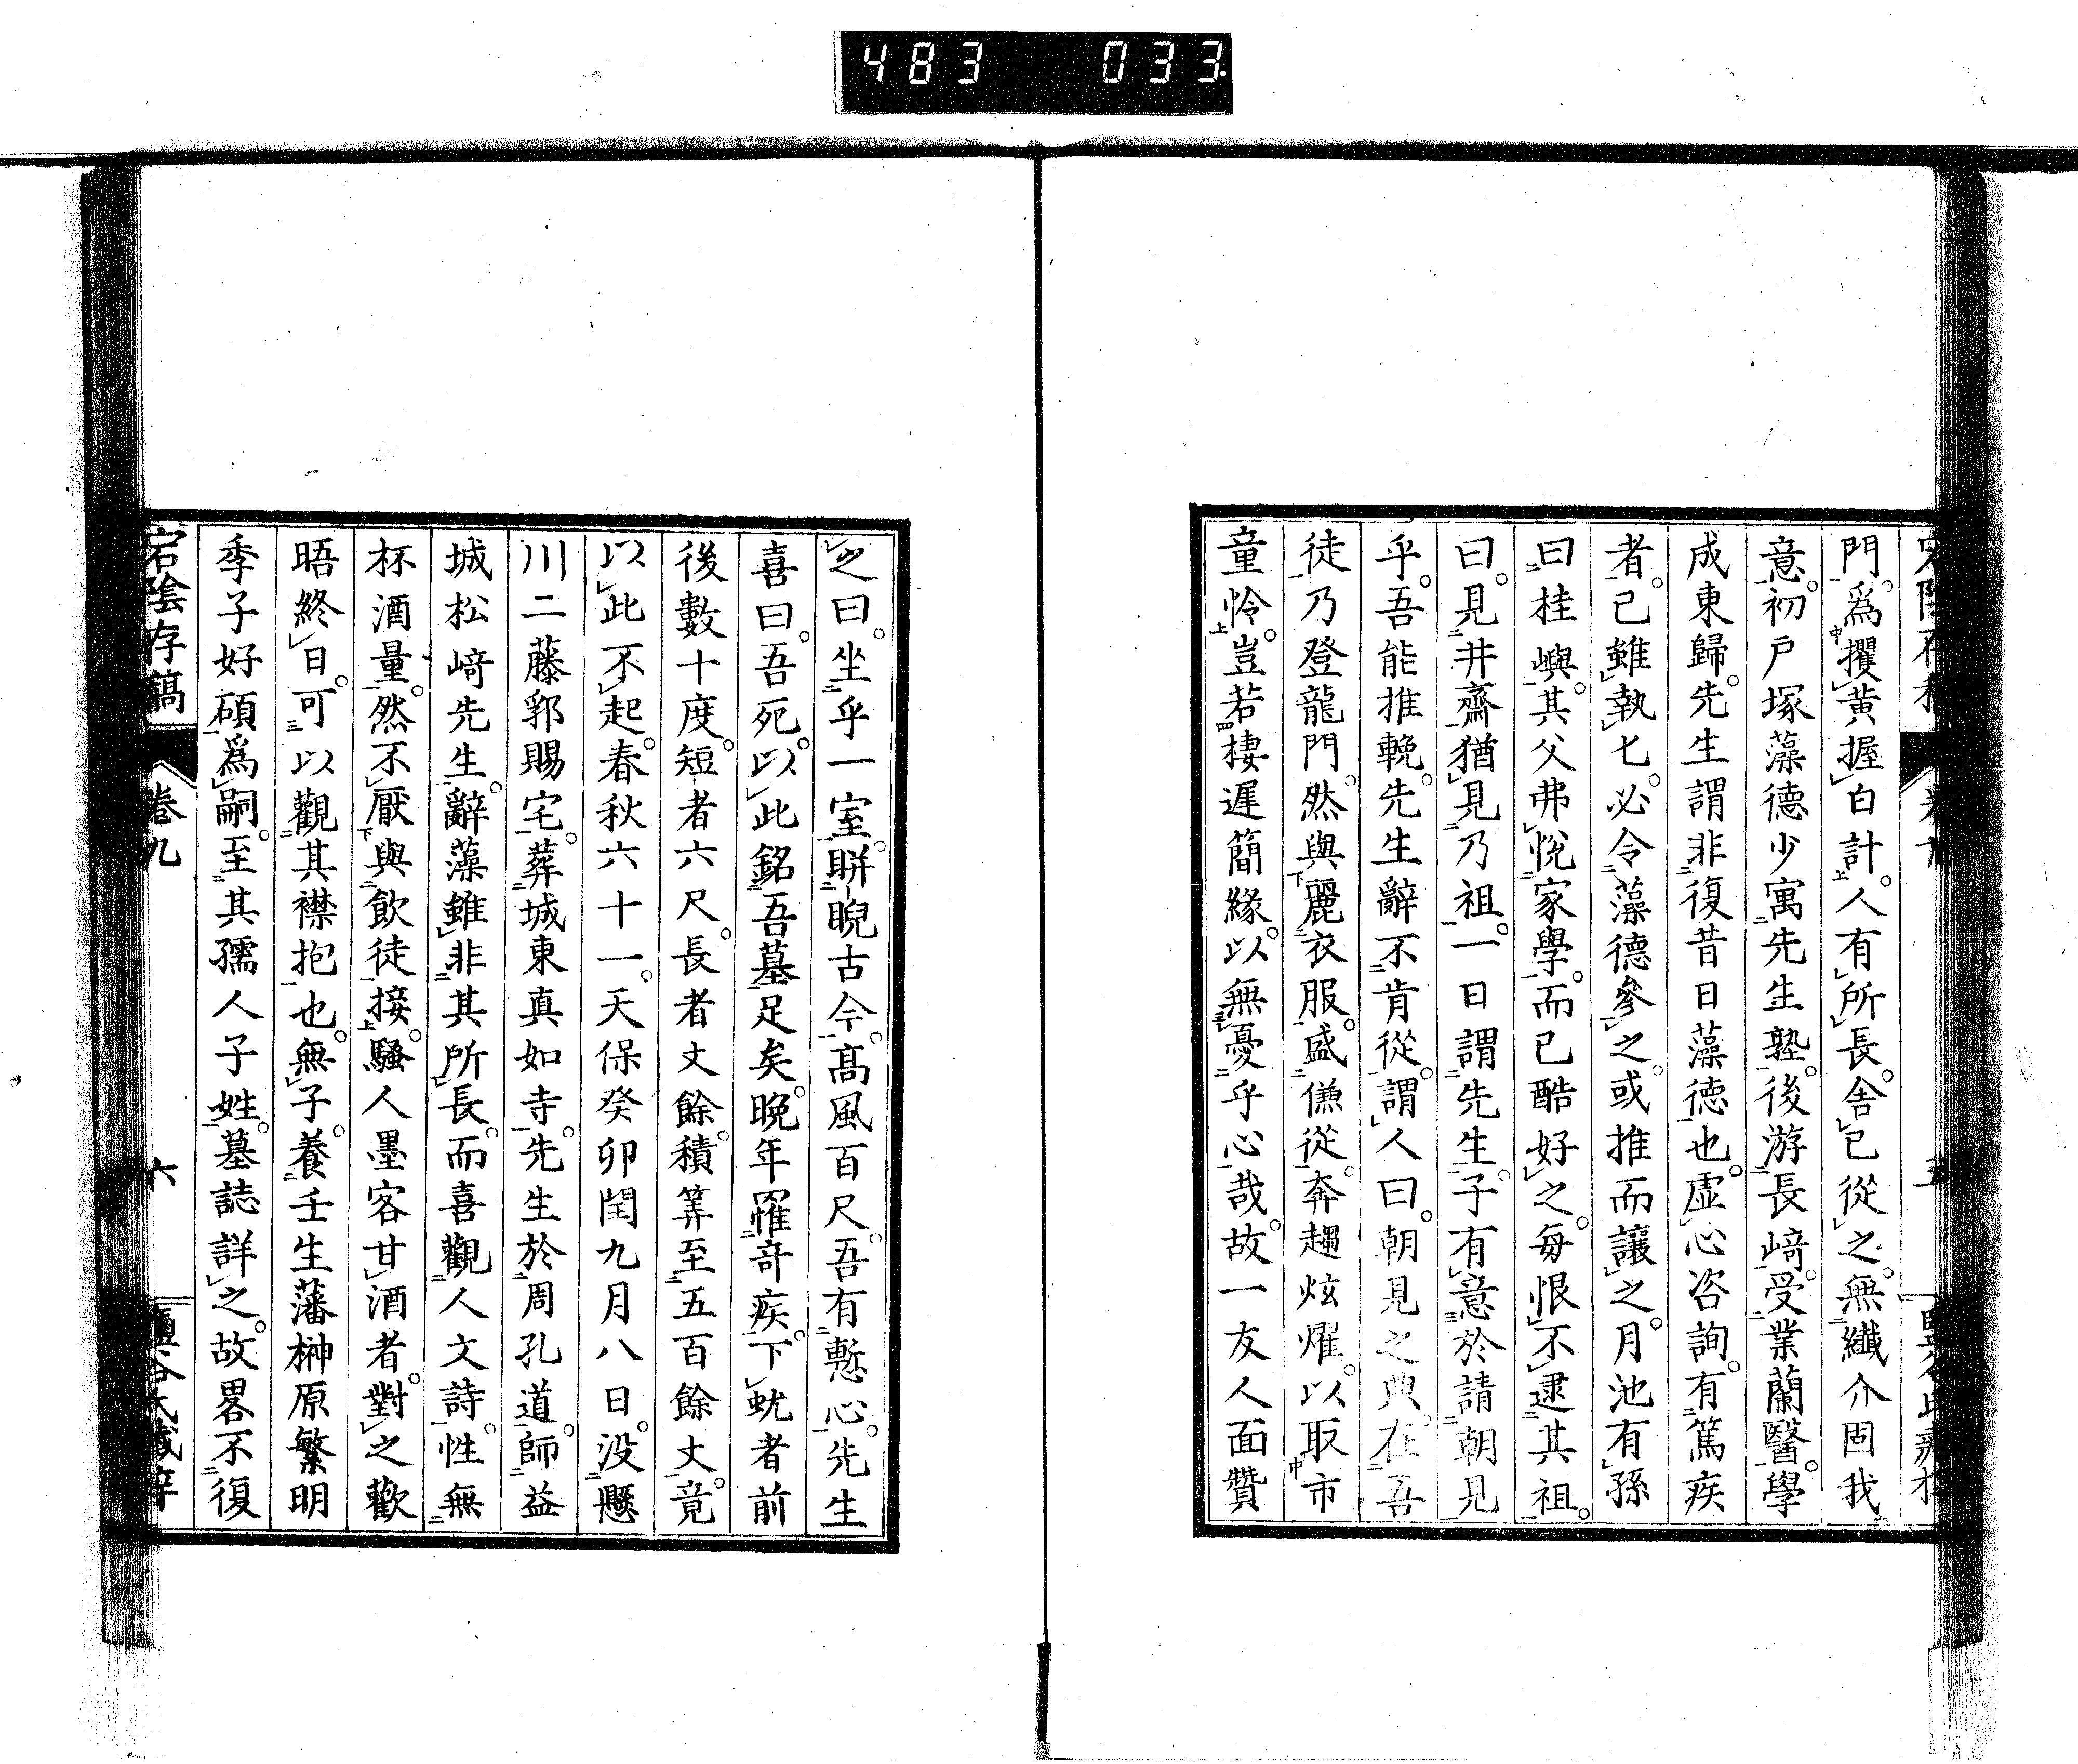 483 033
門。爲攫黄握白計。人有所長。舎已從之。無纖介固我
意。初戸塚藻德少寓先生塾。後游長﨑。受業蘭醫。學
成東歸。先生謂非復昔日藻德也。虚心咨詢。有篤疾
者。已雖執匕。必令藻德參之。或推而讓之。月池有孫
曰桂嶼。其父弗悅家學。而已酷好之。毎恨不逮其祖。
曰。見井齋猶見乃祖。一日謂先生。子有意於請朝見
乎。吾能推輓。先生辭不肯從。謂人曰。朝見之典。在吾
徒乃登龍門。然與麗衣服。盛傔從。奔趨炫燿。以取市
童怜。豈若棲遲簡緣。以無憂乎心哉。故一友人面贊
之曰。坐乎一室。聠睨古今。髙風百尺。吾有慙心。先生
喜曰。吾死。以此銘吾墓足矣。晩年罹竒疾。下蚘者前
後數十度。短者六尺。長者丈餘。積筭至五百餘丈。竟
以此不起。春秋六十一。天保癸卯閏九月八日。没懸
川二藤郭賜宅。葬城東真如寺。先生於周孔道。師益
城松﨑先生。辭藻雖非其所長。而喜觀人文詩。性無
杯酒量。然不厭與飲徒接。騷人墨客甘酒者。對之歡
晤終日。可以觀其襟抱也。無子。養壬生藩榊原繁明
季子好碩爲嗣。至其孺人子姓。墓誌詳之。故畧不復
宕陰存稿 卷九 六